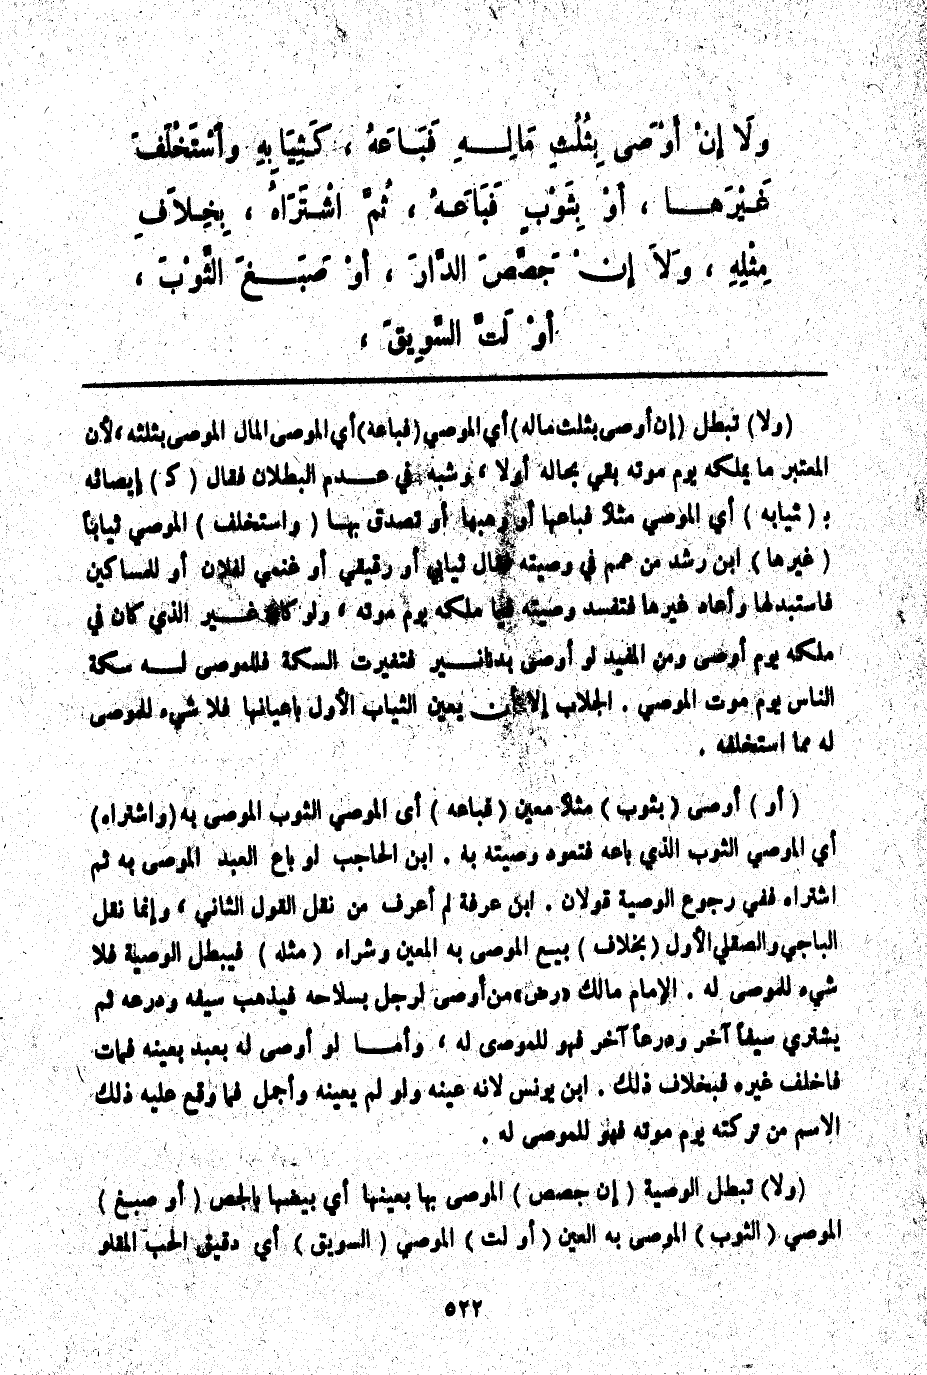 ولَا إِنْ أَوْصَى بِثُلُثِ مَالِهِ فَبَاعَهُ ، كَثِيَابِهِ وٱسْتَخْلَفَ
غَيْرَهَا ، أَوْ بِثَوْبٍ فَبَاعَهُ ، ثُمَّ اشْتَرَاهُ ، بِخِلاَفِ
مِثْلِهِ ، وَلاَ إِنْ جَصَّصَ الدَّارَ ، أَوْ صَبَغَ الثَّوْبَ ،
أَوْ لَتَّ السَّوِيقَ ،
(ولا) تبطل (إن أوصى بثلث ماله) أي الموصي (فباعه) أي الموصى المال الموصى بثلثه ، لأن
المعتبر ما يملكه يوم موته بقي بحاله أولا ، وشبه في عدم البطلان فقال ( كـ ) إيصائه
بـ ( ثيابه ) أي الموصي مثلا فباعها أو وهبها أو تصدق بها ( واستخلف ) الموصي ثيابا
( غيرها ) ابن رشد من عمم في وصيته فقال ثيابي أو رقيقي أو غنمي لفلان أو للمساكين
فاستبدلها وأعاد غيرها فتفسد وصيته فيما ملكه يوم موته ، ولو كان غير الذي كان في
ملكه يوم أوصى ومن المفيد لو أوصى بدنانير فتغيرت السكة فللموصى له سكة
الناس يوم موت الموصي . الجلاب إلا أن يعين الثياب الأول بأعيانها فلا شيء للموصى
له مما استخلفه .
( أو ) أوصى ( بثوب ) مثلا معين ( فباعه ) أى الموصي الثوب الموصى به (واشتراه)
أي الموصي الثوب الذي باعه فتعود وصيته به . ابن الحاجب لو باع العبد الموصى به ثم
اشتراه ففي رجوع الوصية قولان . ابن عرفة لم أعرف من نقل القول الثاني ، وإنما نقل
الباجي والصقلي الأول ( بخلاف ) بيع الموصى به المعين وشراء ( مثله ) فيبطل الوصية فلا
شيء للموصى له . الإمام مالك «رض» من أوصى لرجل بسلاحه فيذهب سيفه ودرعه ثم
يشتري سيفاً آخر ودرعاً آخر فهو للموصى له ، وأما لو أوصى له بعبد بعينه فمات
فاخلف غيره فبخلاف ذلك . ابن يونس لانه عينه ولو لم يعينه وأجمل فما وقع عليه ذلك
الاسم من تركته يوم موته فهو للموصى له .
(ولا) تبطل الوصية ( إن جصص ) الموصى بها بعينها أي بيضها بالجص ( أو صبغ )
الموصي ( الثوب ) الموصى به العين ( أو لت ) الموصي ( السويق ) أي دقيق الحب المقلو
٥٢٢